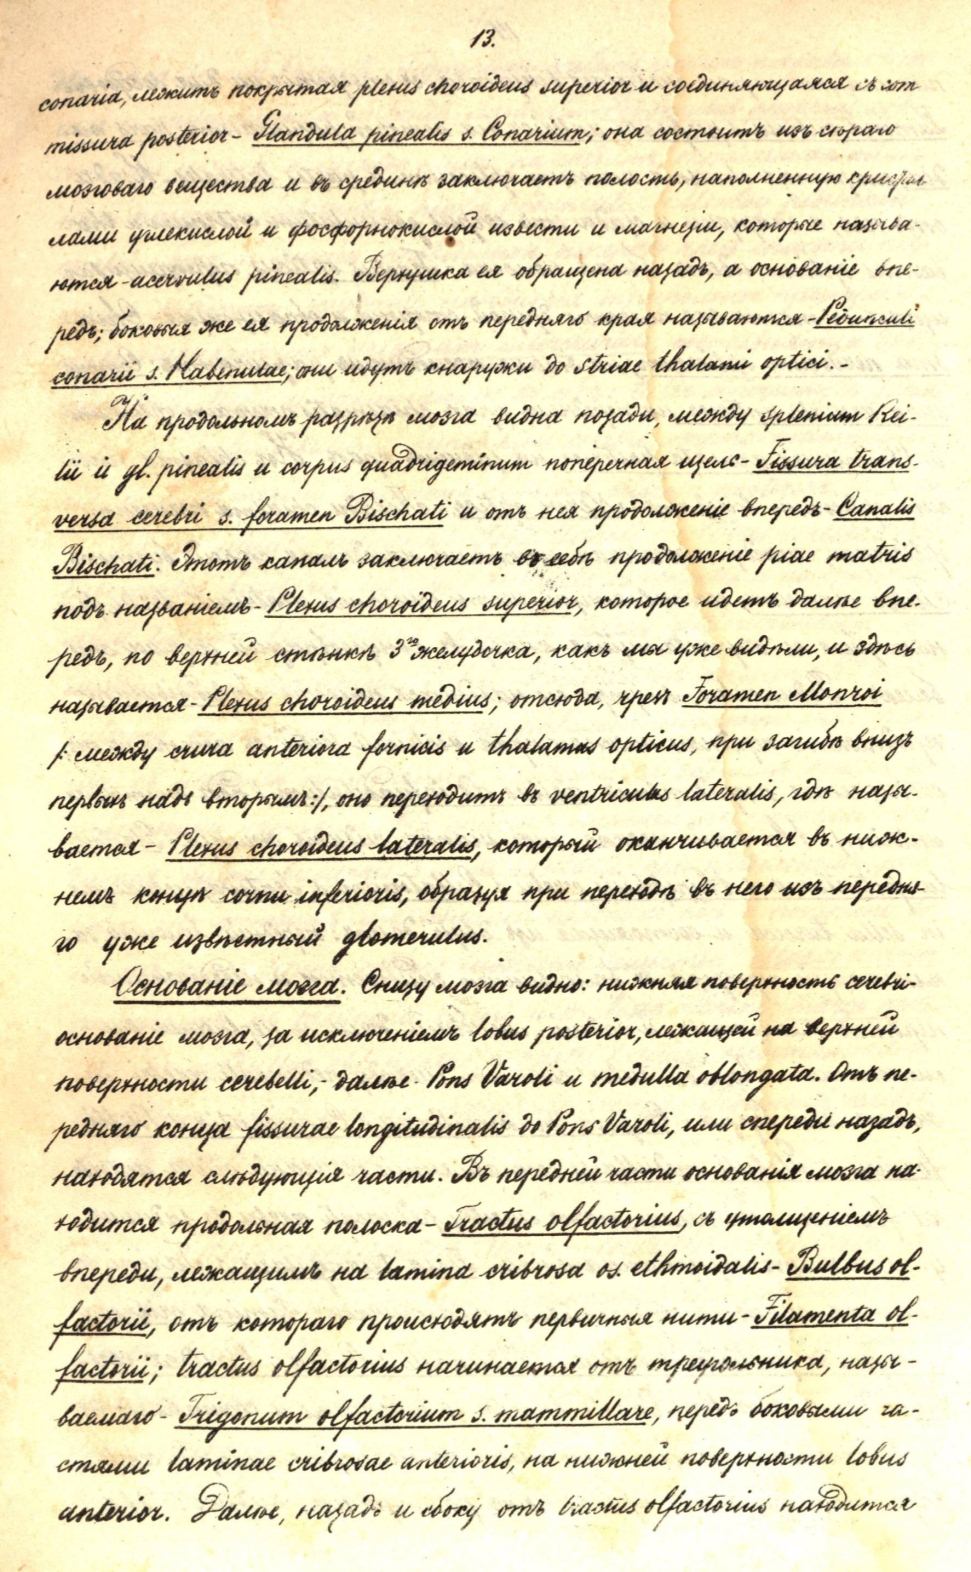 13.
conaria, лежитъ покрытая plexus choroideus superior и соединяющаяся съ com
missura posterior - Glandula pinealis s. Conarium; она состоитъ изъ сѣраго
мозговаго вещества и въ срединѣ заключаетъ полость, наполненную кристал
лами углекислой и фосфорнокислой извести и магнезіи, которые называ-
ются - acervulus pinealis. Верхушка ея обращена назадъ, а основаніе впе-
редъ; боковыя же ея продолженія отъ передняго края называются - Pedunculi
conarii s. Habenulae; они идутъ кнаружи до striae thalami optici. -
На продольномъ разрѣзѣ мозга видна позади, между splenium Rei-
lii и gl. pinealis и corpus quadrigeminum поперечная щель - Fissura trans-
versa cerebri s. foramen Bischati и отъ нея продолженіе впередъ - Canalis
Bischati. Этотъ каналъ заключаетъ въ себѣ продолженіе piae matris
подъ названіемъ - Plexus choroideus superior, которое идетъ далѣе впе-
редъ, по верхней стѣнкѣ 3го желудочка, какъ мы уже видѣли, и здѣсь
называется - Plexus choroideus medius; отсюда, чрезъ Foramen Monroi
/: между crura anteriora fornicis и thalamus opticus, при загибѣ внизъ
первыхъ надъ вторымъ :/, оно переходитъ въ ventriculus lateralis, гдѣ назы-
вается - Plexus choroideus lateralis, который оканчивается въ ниж-
немъ концѣ cornu inferioris, образуя при переходѣ въ него изъ передня-
го уже извѣстный glomerulus.
Основаніе мозга. Снизу мозга видно: нижняя поверхность cerebri -
основаніе мозга, за исключеніемъ lobus posterior, лежащей на верхней
поверхности cerebelli, - далѣе Pons Varoli и medulla oblongata. Отъ пе-
редняго конца fissurae longitudinalis до Pons Varoli, или спереди назадъ,
находятся слѣдующія части. Въ передней части основанія мозга на-
ходится продольная полоска - Tractus olfactorius, съ утолщеніемъ
впереди, лежащимъ на lamina cribrosa os. ethmoidalis - Bulbus ol-
factorii, отъ котораго происходятъ первичныя нити - Filamenta ol-
factorii; tractus olfactorius начинается отъ треугольника, назы-
ваемаго - Trigonum olfactorium s. mammillare, передъ боковыми ча-
стями laminae cribrosae anterioris, на нижней поверхности lobus
anterior. Далѣе, назадъ и сбоку отъ tractus olfactorius находится